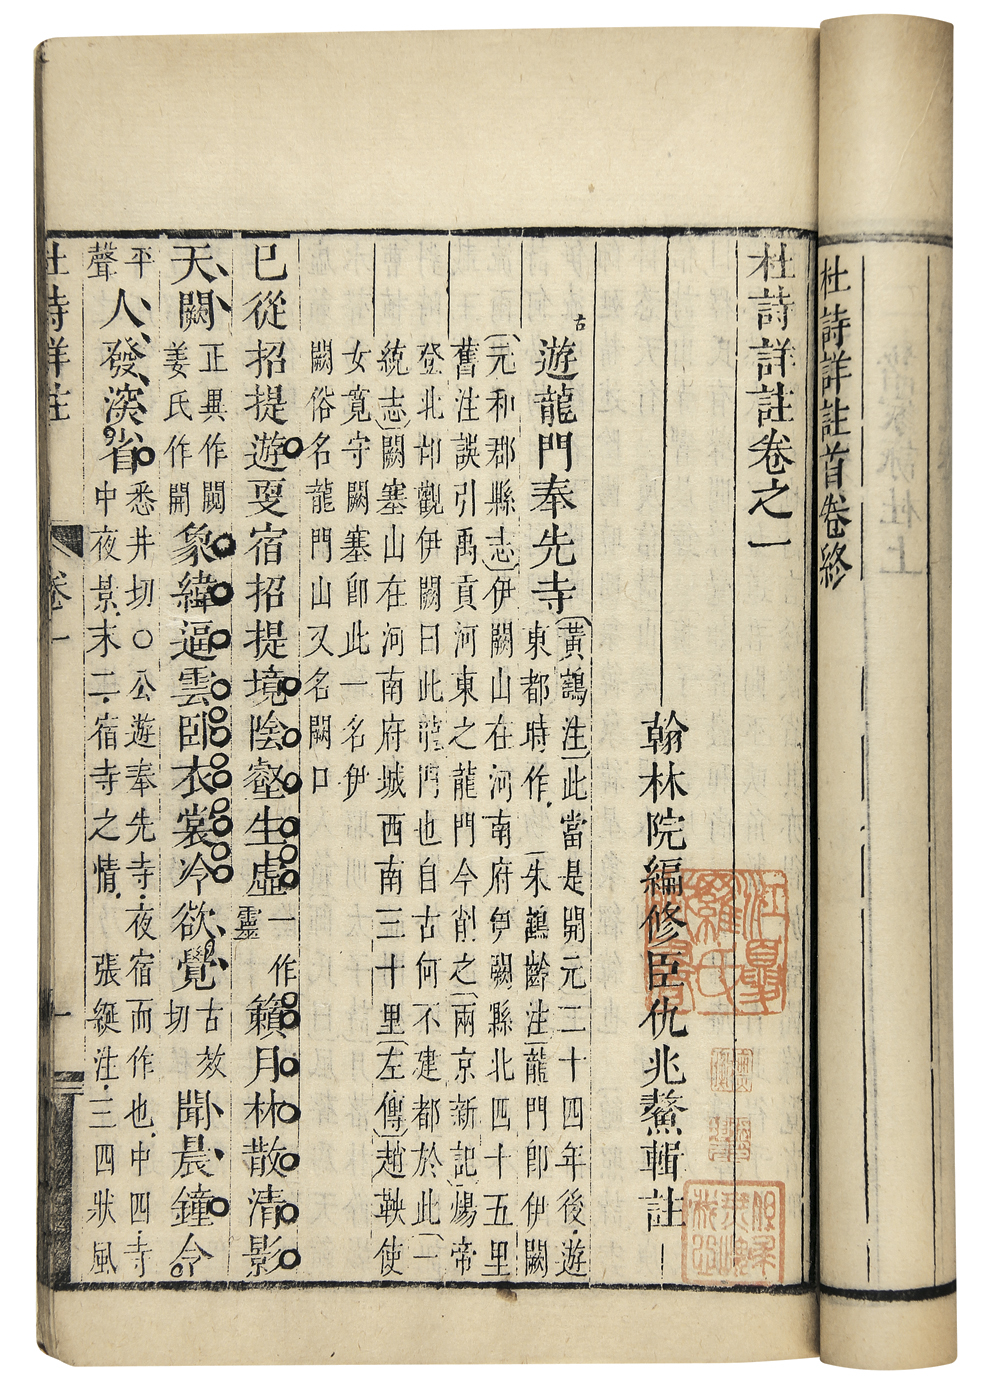 杜詩詳註首卷終
杜詩詳註卷之一
翰林院編修臣仇兆鰲輯註
古
遊龍門奉先寺
黃鶴注此當是開元二十四年後遊
東都時作朱鶴齡注龍門卽伊闕
元和郡縣志伊闕山在河南府伊闕縣北四十五里
舊注誤引禹貢河東之龍門今削之兩京新記煬帝
登北邙觀伊闕曰此龍門也自古何不建都於此一
統志闕塞山在河南府城西南三十里左傳趙鞅使
女寬守闕塞卽此一名伊
闕俗名龍門山又名闕口
已從招提遊更宿招提境陰壑生虛
一作
靈
籟月林散清影
天闕
正異作閱
姜氏作開
象緯逼雲臥衣裳冷欲覺
古效
切
聞晨鐘令
平
聲
人發深省
悉井切○公遊奉先寺夜宿而作也中四寺
中夜景末二宿寺之情張綖注三四狀風
杜詩詳註
卷一
一